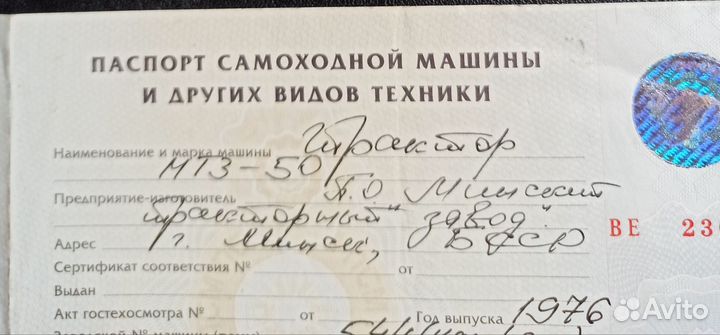 ПАСПОРТ САМОХОДНОЙ МАШИНЫ
И ДРУГИХ ВИДОВ ТЕХНИКИ
Наименование и марка машины Трактор
МТЗ-50
Предприятие-изготовитель П.О. Минский
тракторный завод"
Адрес г. Минск, БССР
ВЕ 23
Сертификат соответствия № от
Выдан
Акт гостехосмотра № от Год выпуска 1976
544
Avito